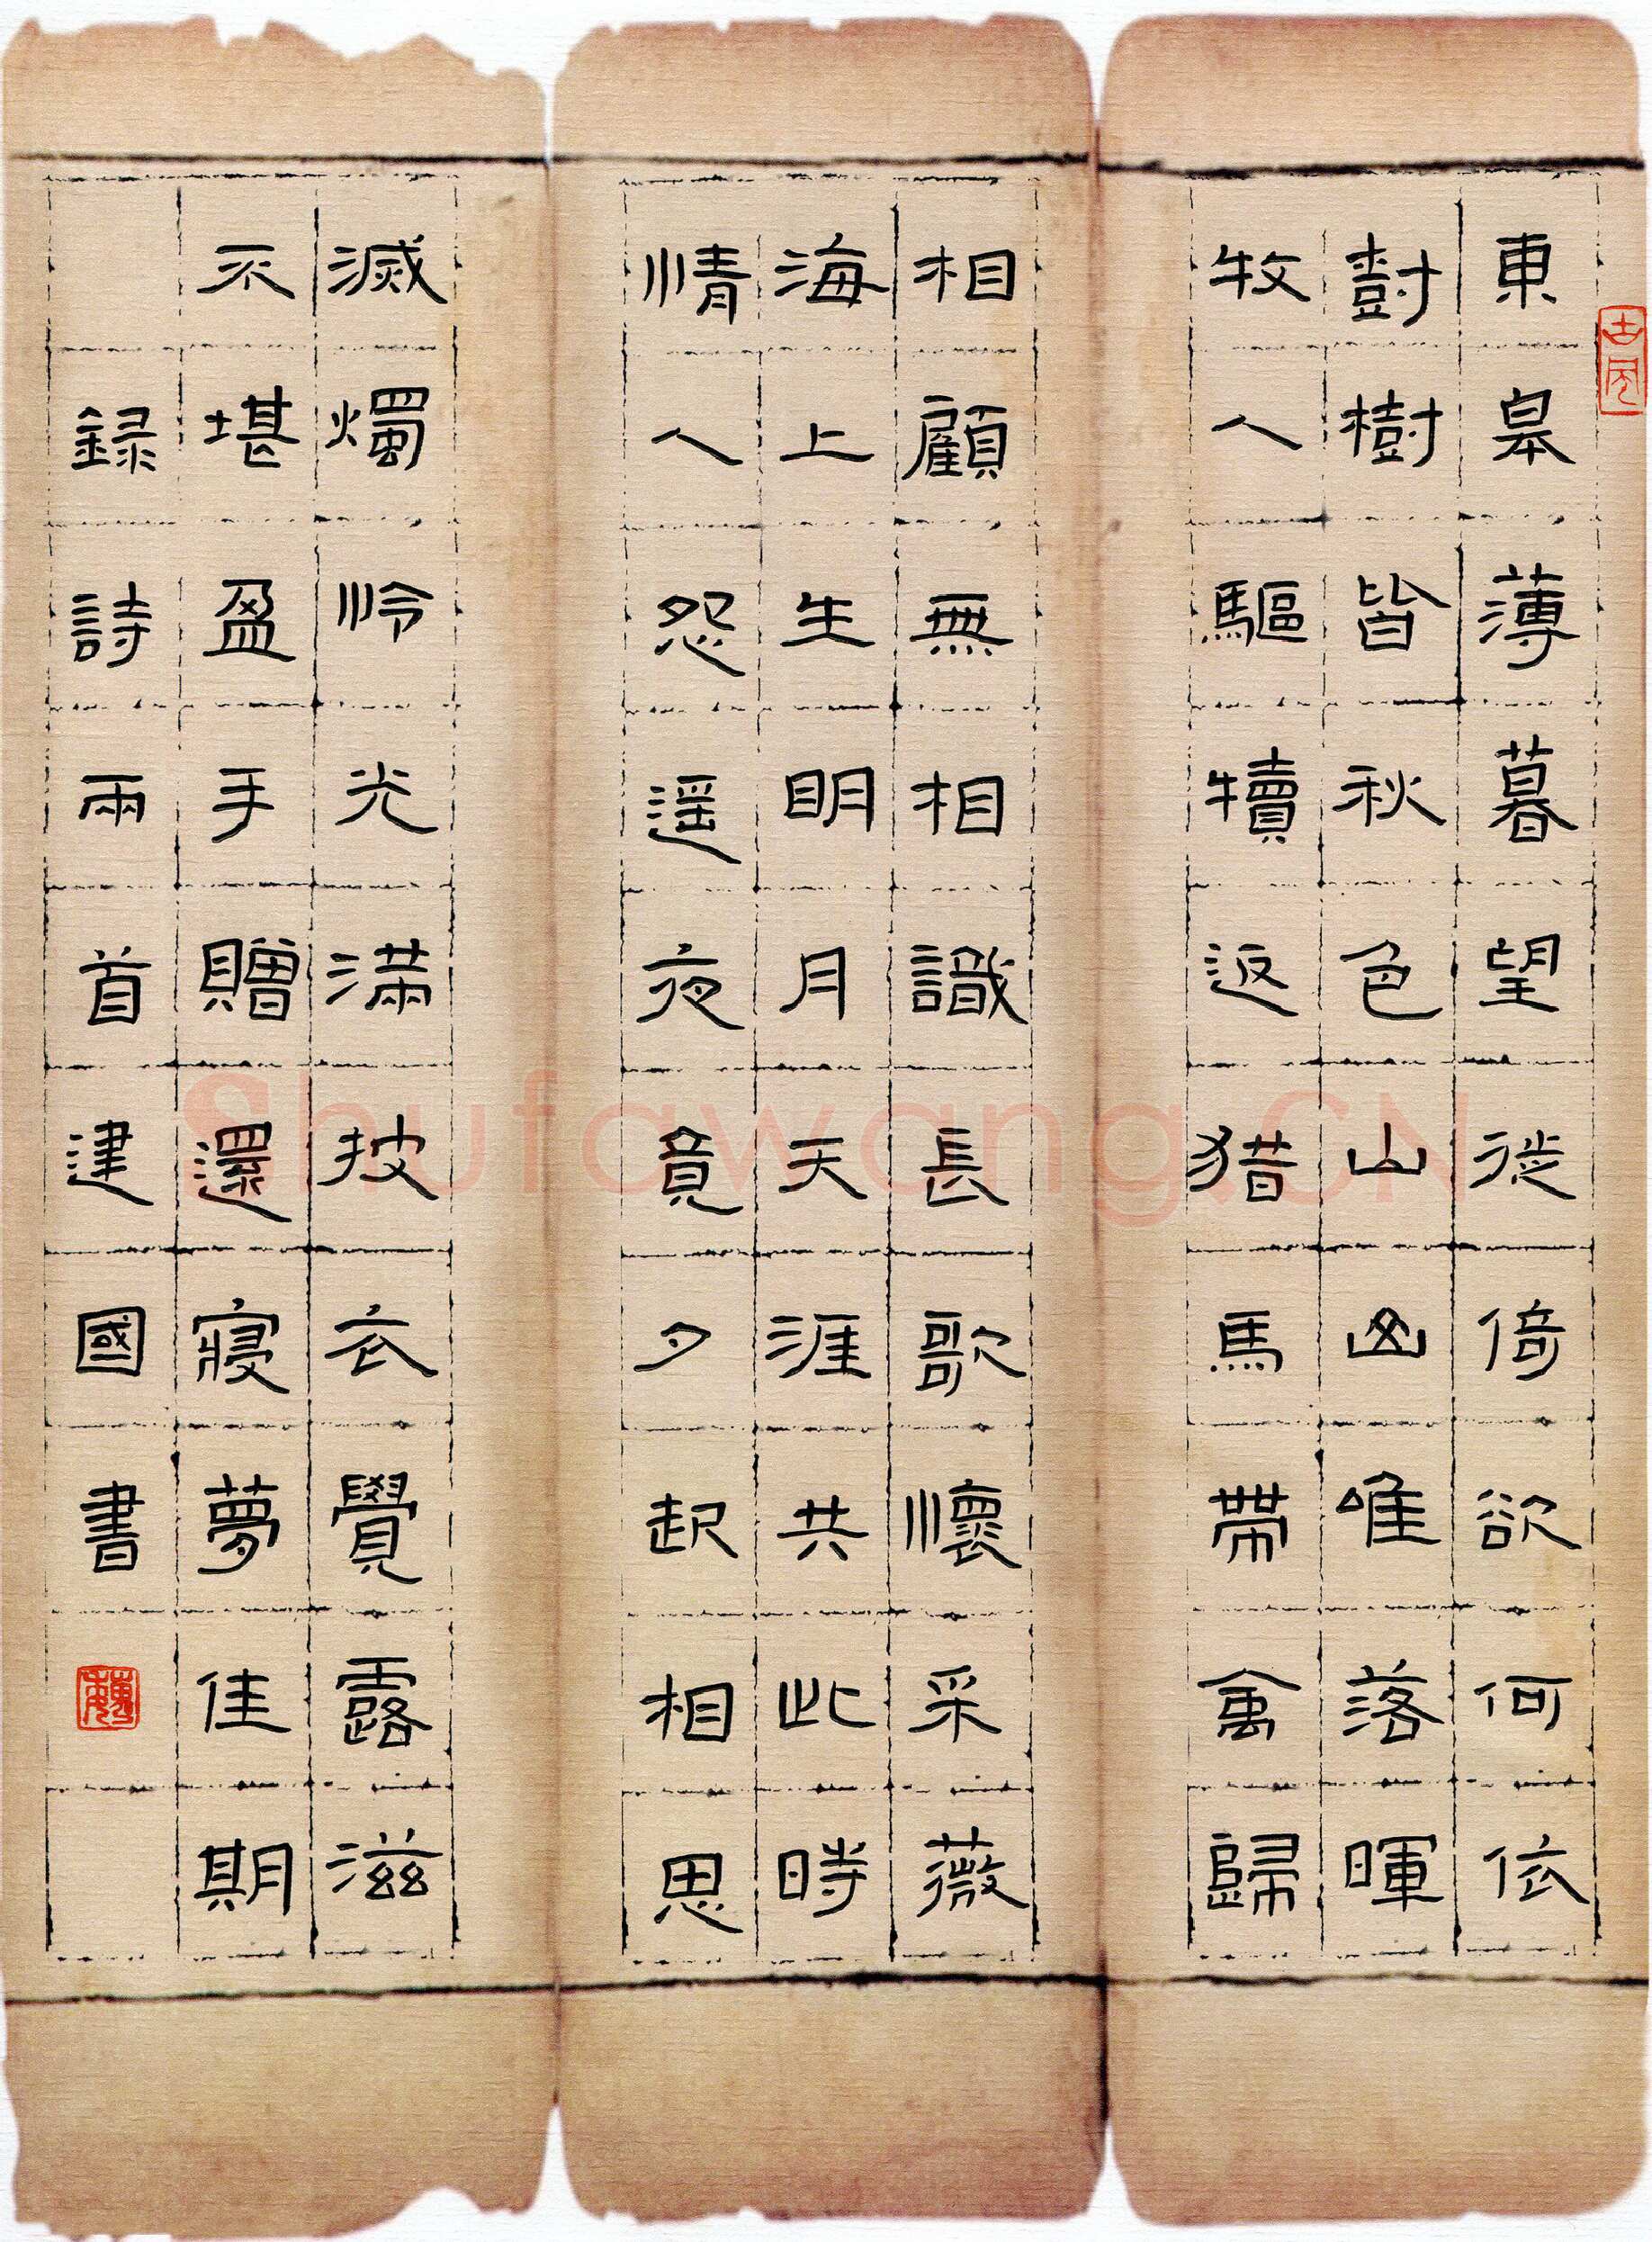 古风
東皋薄暮望徙倚欲何依
尌樹皆秋色山山唯落暉
牧人驅犢返猎馬帶禽歸
相顧無相識長歌懷采薇
海上生明月天涯共此時
情人怨遥夜竟夕起相思
滅燭怜光滿披衣覺露滋
不堪盈手贈還寢夢佳期
録詩兩首建國書
Shufawang.CN